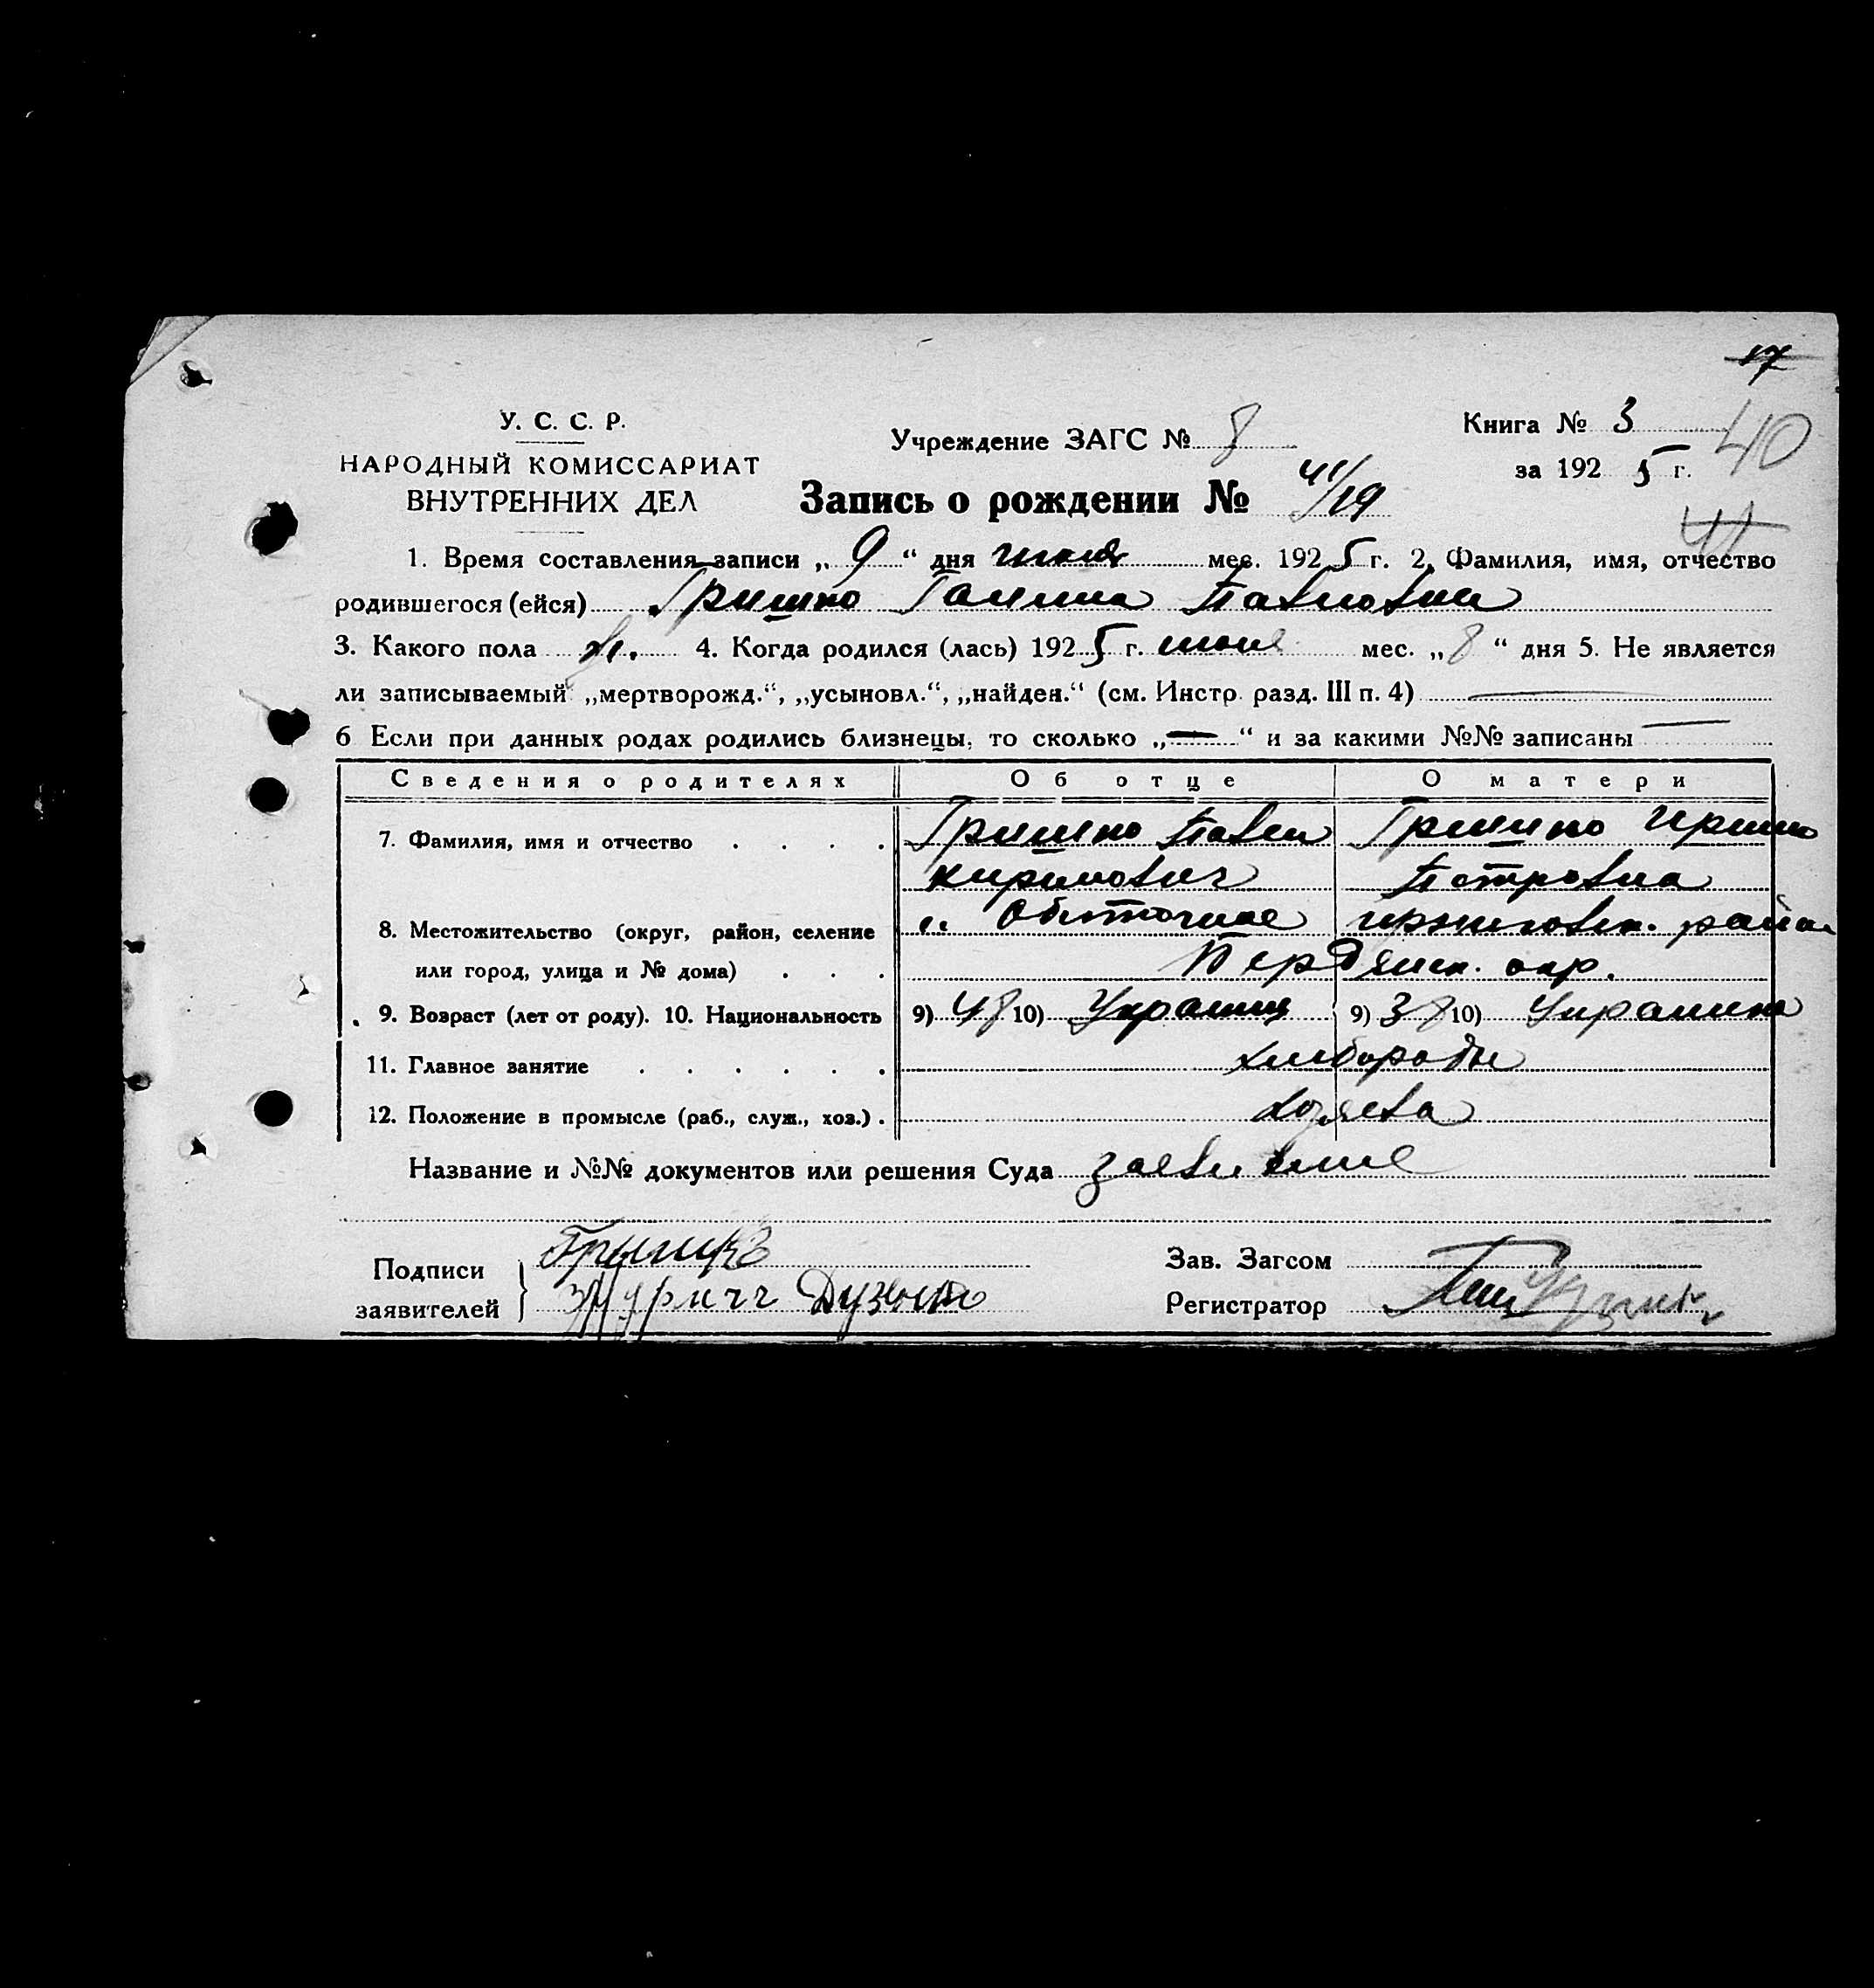 17
У. С. С. Р.
НАРОДНЫЙ КОМИССАРИАТ
ВНУТРЕННИХ ДЕЛ
Учреждение ЗАГС № 8
Книга № 3
за 1925 г.
40
Запись о рождении № 41/19
41
1. Время составления записи „ 9 “ дня июня мес. 1925 г. 2. Фамилия, имя, отчество
родившегося (ейся) Гришко Галина Павловна
3. Какого пола ж. 4. Когда родился (лась) 1925 г. июня мес. „ 8 “ дня 5. Не является
ли записываемый „мертворожд.“, „усыновл.“, „найден.“ (см. Инстр. разд. III п. 4) —
6 Если при данных родах родились близнецы, то сколько „—“ и за какими №№ записаны —
Сведения о родителях Об отце О матери
7. Фамилия, имя и отчество . . . . Гришко Павел Гришко Ирина
Кирилович Петровна
8. Местожительство (округ, район, селение с. Обиточное район
или город, улица и № дома) . . . Бердянск. окр.
9. Возраст (лет от роду). 10. Национальность 9) 48 10) Украинц 9) 38 10) Украинка
11. Главное занятие . . . . . . хлиборобы
12. Положение в промысле (раб., служ., хоз.) . хозяева
Название и №№ документов или решения Суда заевление
Подписи
заявителей
Грышко
Зав. Загсом
Регистратор